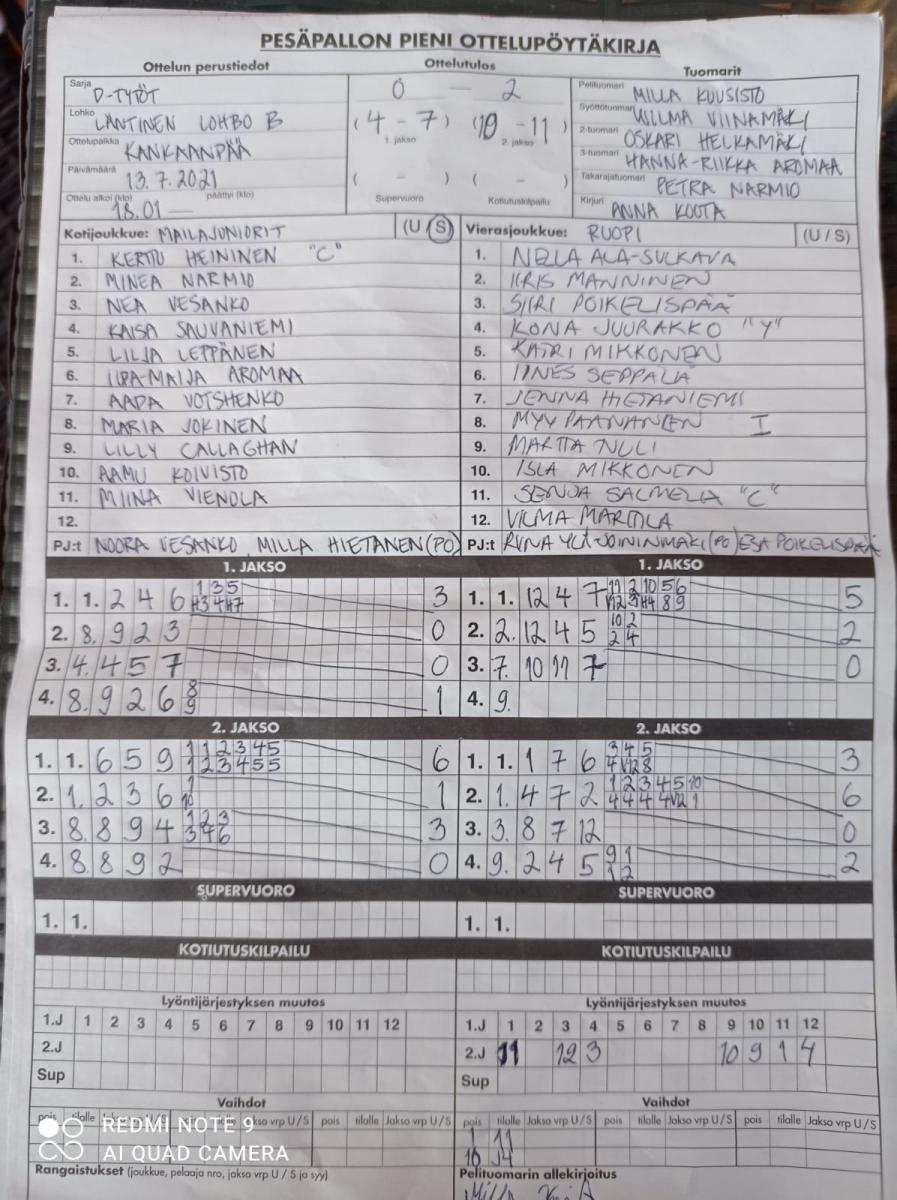 PESÄPALLON PIENI OTTELUPÖYTÄKIRJA
Ottelun perustiedot
Ottelutulos
Tuomarit
Sarja D-TYTÖT
Lohko LÄNTINEN LOHBO B
Ottelupaikka KANKAANPÄÄ
Päivämäärä 13.7.2021
Ottelu alkoi (klo) 18.01 — päättyi (klo)
0 – 2
(4 – 7) (10 – 11)
1. jakso 2. jakso
( – ) ( – )
Supervuoro Kotiutuskilpailu
Pelituomari MILLA KUUSISTO
Syöttötuomari WILMA VIINAMÄKI
2-tuomari OSKARI HELKAMÄKI
3-tuomari HANNA-RIIKKA AROMAA
Takarajatuomari PETRA NARMIO
Kirjuri ANNA KOOTA
Kotijoukkue: MAILAJUNIORIT (U/S)
1. KERTTU HEININEN "C"
2. MINEA NARMIO
3. NEA VESANKO
4. KAISA SAUVANIEMI
5. LILJA LEPPÄNEN
6. IIDA-MAIJA AROMAA
7. AADA VOTSHENKO
8. MARIA JOKINEN
9. LILLY CALLAGHAN
10. AAMU KOIVISTO
11. MIINA VIENOLA
12.
PJ:t NOORA VESANKO, MILLA HIETANEN (PO)
Vierasjoukkue: RUOPI (U/S)
1. NELLA ALA-SULKAVA
2. IIRIS MANNINEN
3. SIIRI POIKELISPÄÄ
4. KONA JUURAKKO "Y"
5. KATRI MIKKONEN
6. IINES SEPPÄLÄ
7. JENNA HIETANIEMI
8. MYY PAANANEN I
9. MARTTA NULI
10. ISLA MIKKONEN
11. SENJA SALMELA "C"
12. VILMA MARTTILA
PJ:t (PO) ESA POIKELISPÄÄ
1. JAKSO
1. 1. 2 4 6 1 3 5 3
H3 4 H7
2. 8. 9 2 3 0
3. 4. 4 5 7 0
4. 8. 9 2 6 8 1
9
1. JAKSO
1. 1. 12 4 7 11 2 10 5 6 5
V12 3 H4 8 9
2. 2. 12 4 5 10 2 2
2 4
3. 7. 10 11 7 0
4. 9.
2. JAKSO
1. 1. 6 5 9 1 1 2 3 4 5 6
1 2 3 4 5 5
2. 1. 2 3 6 1 1
10
3. 8. 8 9 4 1 2 3 3
3 4 6
4. 8. 8 9 2 0
2. JAKSO
1. 1. 1 7 6 3 4 5 3
4 V12 8
2. 1. 4 7 2 1 2 3 4 5 10 6
4 4 4 4 V12 1
3. 3. 8 7 12 0
4. 9. 2 4 5 9 1 2
1 2
SUPERVUORO
1. 1.
SUPERVUORO
1. 1.
KOTIUTUSKILPAILU
KOTIUTUSKILPAILU
Lyöntijärjestyksen muutos
1.J 1 2 3 4 5 6 7 8 9 10 11 12
2.J
Sup
Lyöntijärjestyksen muutos
1.J 1 2 3 4 5 6 7 8 9 10 11 12
2.J 11 12 3 10 9 1 4
Sup
Vaihdot
pois tilalle Jakso vrp U / S pois tilalle Jakso vrp U / S pois tilalle Jakso vrp U / S
Vaihdot
pois tilalle Jakso vrp U / S pois tilalle Jakso vrp U / S pois tilalle Jakso vrp U / S
1 11
10
Rangaistukset (joukkue, pelaaja nro, jakso vrp U / S ja syy)
Pelituomarin allekirjoitus
REDMI NOTE 9
AI QUAD CAMERA